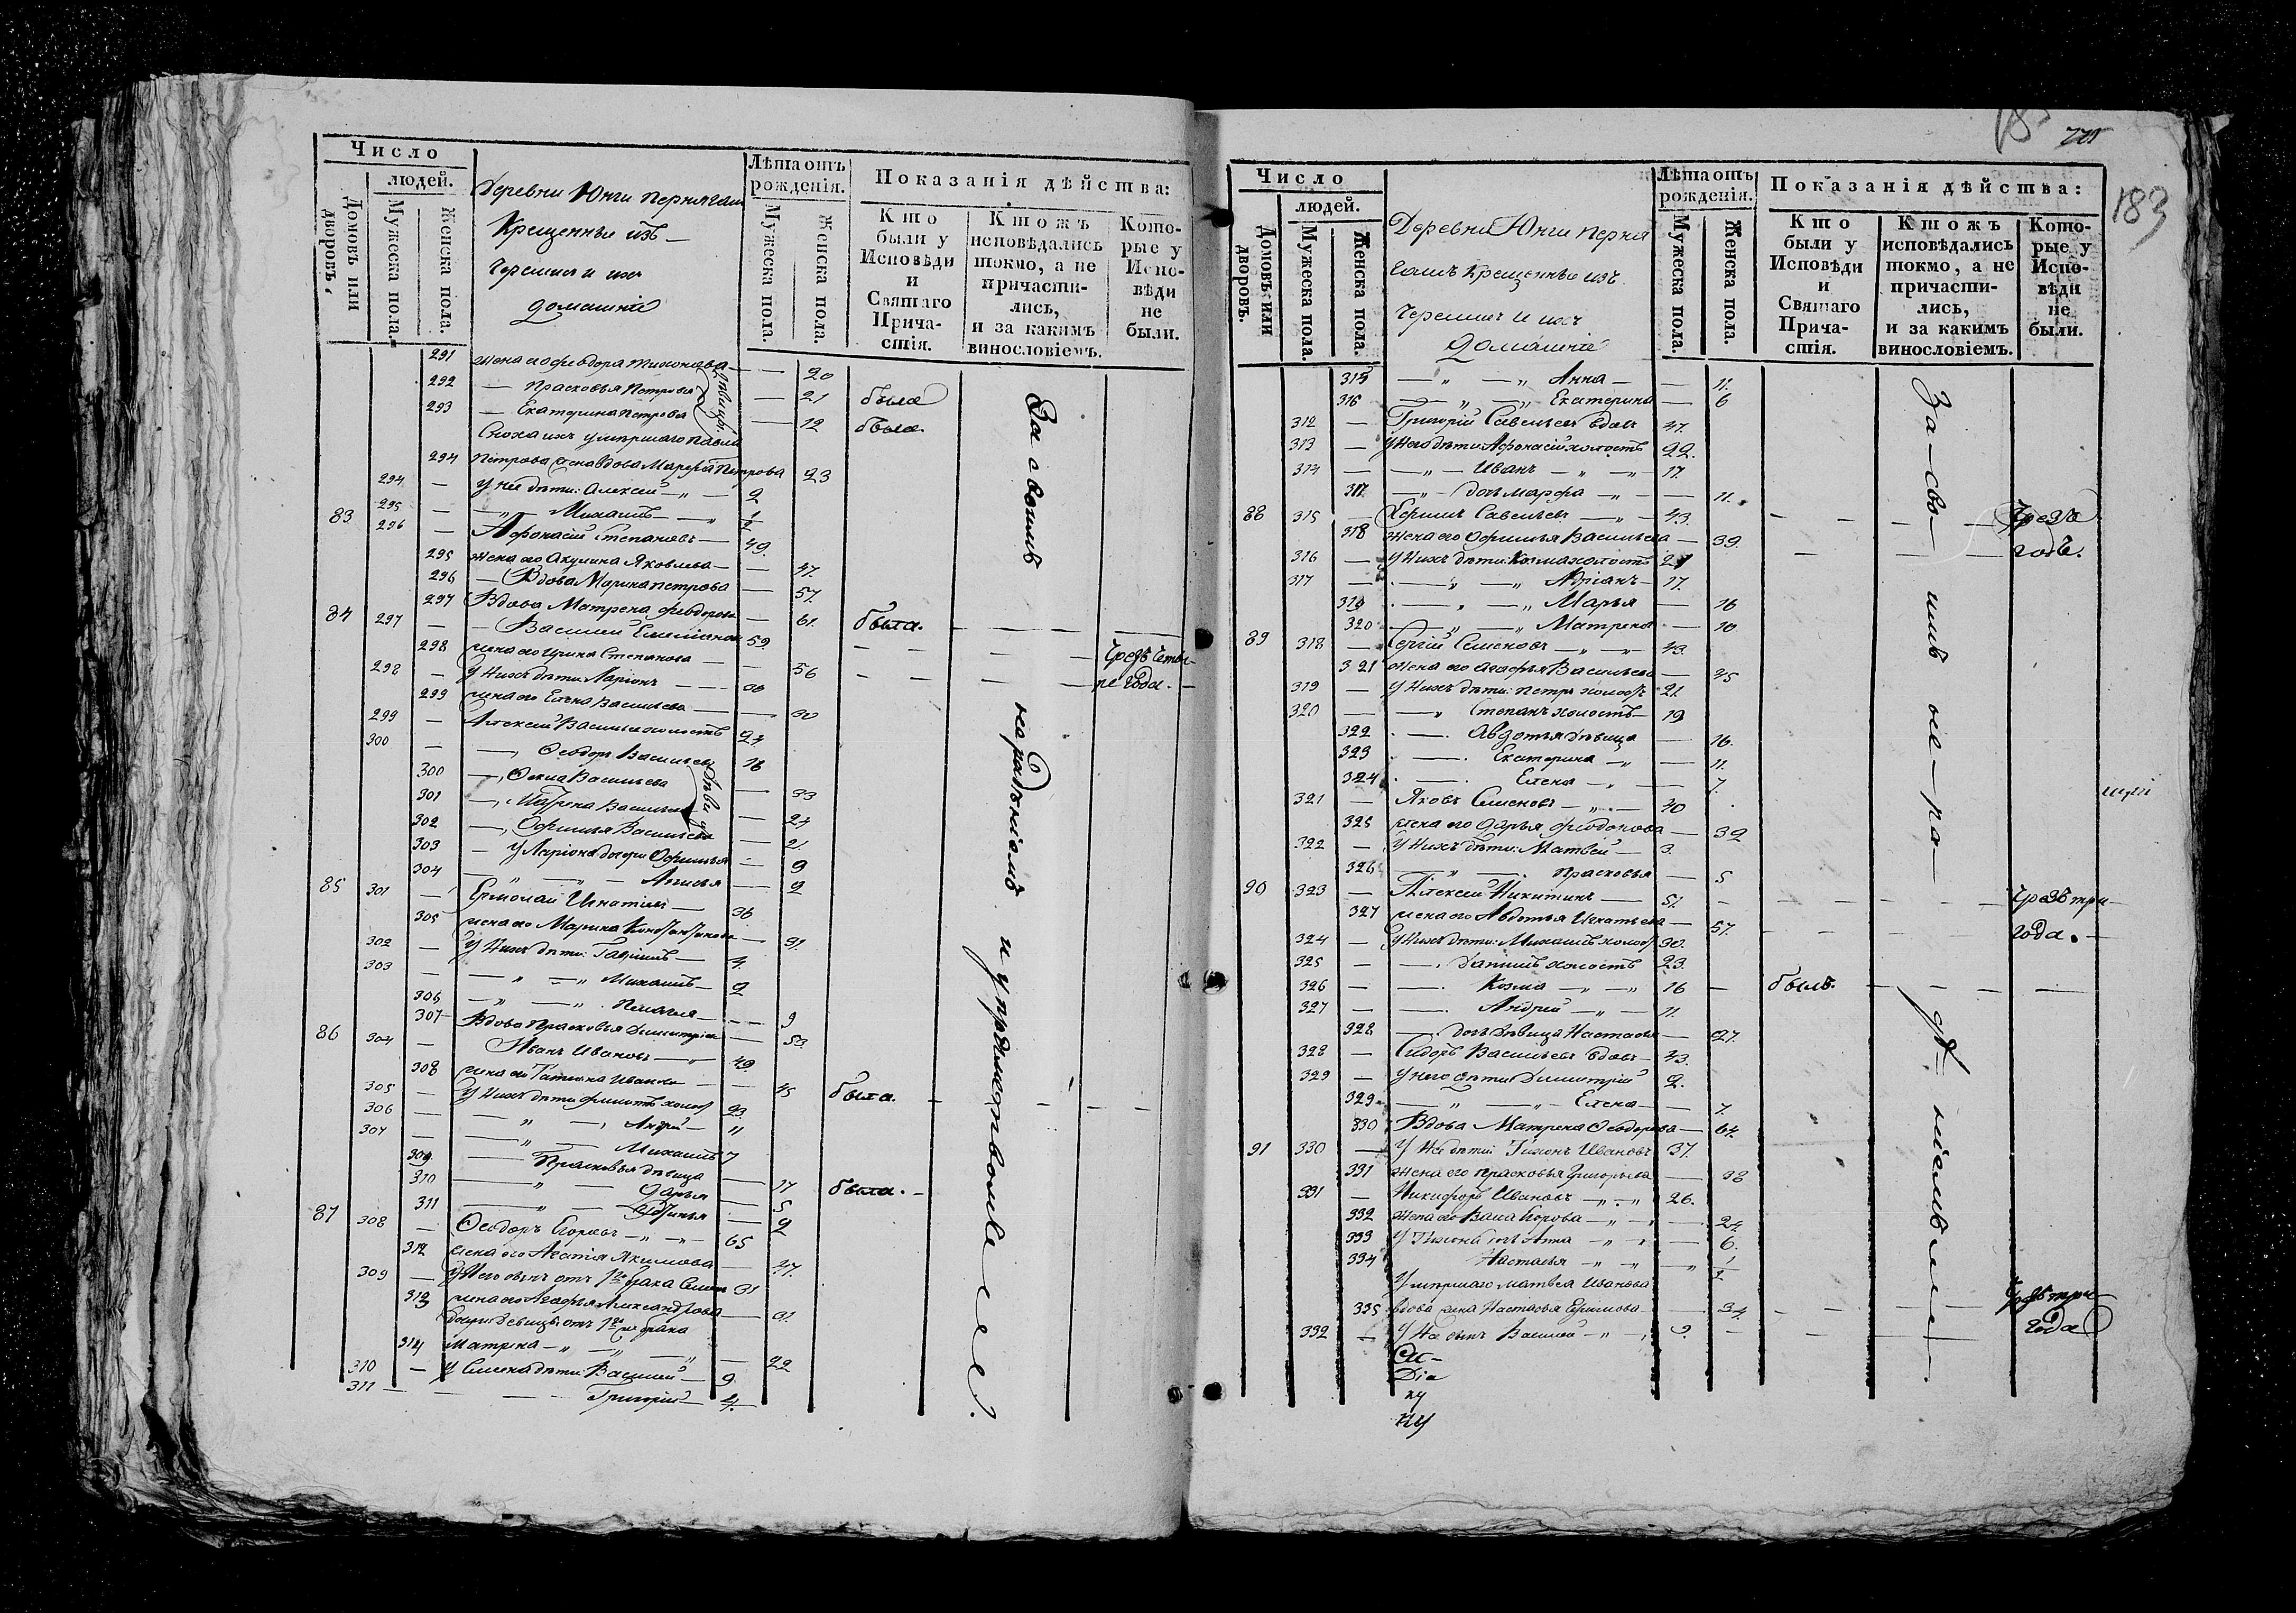 Число
людей.
Домовъ или дворовъ.
Мужеска пола.
Женска пола.
Деревни Юнги Пернягаш
Крещенные изъ
Черемисъ и ихъ
домашніе
Лѣта отъ рожденія.
Мужеска пола.
Женска пола.
Показанія дѣйства:
Кто были у Исповѣди и Святаго Причастія.
Ктожъ исповѣдались токмо, а не причастились, и за какимъ винословіемъ.
Которые у Исповѣди не были.
291 жена его Феодора Тихонова — 20
292 — Прасковья Петрова — 21 была
293 — Екатерина Петрова — 12 была.
дѣвицы
Сноха ихъ умершаго Павла
294 Петрова жена вдова Марфа Петрова 23
294 — У нее дѣти: Алексей — „ — 2
295 — — „ — Михаилъ — „ 1/2
83 296 — Афонасій Степановъ — 49
295 жена его Акулина Яковлева — 47.
296 — Вдова Марина Петрова — 57.
297 Вдова Матрена Феодорова — 61. была.
84 297 — — Василей Емелианов 59.
298 жена его Ирина Степанова — 56
Чрезъ четы-
ре года.
298 — У нихъ дѣти: Ларіонъ — 30
299 жена его Елена Васильева — 30
299 — Алексей Васильев холостъ 24
300 — —, Феодоръ Васильевъ 18
300 —, Васильева — 33
301 —, Матрена Васильева — 24
302 —, Офимья Васильева — 21.
дѣвицы
303 — У Ларіона дочери Офимья — 9
304 — „ — „ — Анисья — 2
85 301 — Ермолай Игнатіевъ — 36
305 жена его Марина Константинова — 31
302 — У нихъ дѣти: Гавріилъ — 4.
303 — — „ — „ Михаилъ — 2
306 — „ — „ Пелагея — 9
307 Вдова Прасковья Димитріева — 53.
86 304 — Иванъ Ивановъ — „ 49.
308 жена его Татиана Иванова — 45 была.
305 — У нихъ дѣти Филиппъ холос 23.
306 — — „ —, Андрей — 11
307 — — „ — Михаилъ 7
309. — Прасковья дѣвица — 17 была.
310 — „ — Дарья — 5
311 — „ — 2
87 308 — Феодоръ Егоровъ — „ — 65
312 жена его Акимова — 47.
309 — У него сынъ отъ 1го брака Семенъ 31
313 жена его Агафья Александрова — 31.
дочери девицы отъ 1го брака
314 Матрена — „ — „ — 22
310 — У Семена дѣти: Василей — 9.
311 — — — Григорій — 4.
За своимъ нерадѣніемъ и упрямствомъ
183
Число
людей.
Домовъ или дворовъ.
Мужеска пола.
Женска пола.
Деревни Юнги Перня
гашъ Крещенные изъ
Черемисъ и ихъ
Домашніе
Лѣта отъ рожденія.
Мужеска пола.
Женска пола.
Показанія дѣйства:
Кто были у Исповѣди и Святаго Причастія.
Ктожъ исповѣдались токмо, а не причастились, и за какимъ винословіемъ.
Которые у Исповѣди не были.
315 — „ — „ Анна — 11.
316 — „ — „ Екатерина — 6
312 — Григорій Савельевъ вдовъ 47.
313 — У него дѣти: Афонасій холостъ 22.
314 — — „ — Иванъ — „ — „ 17.
317. — „ — дочь Марфа — „ — 11.
88 315 — Савельевъ — „ — 43. Чрезъ
318 жена его Офимья Васильева — 39. годъ.
316 — У нихъ дѣти: Козма холостъ 21
317 — — „ — „ Адріанъ — 17.
319 — „ — „ Марья — 16
320 — „ — „ Матрена — 10
89 318 — Сергій Семеновъ — „ — „ 43.
321 жена его Агафья Васильева — 45
319 — У нихъ дѣти: Петръ холостъ 21.
320 — — „ Степанъ холостъ — 19
322 — Авдотья дѣвица — 16.
323 — Екатерина — „ — 11.
324 — Елена — „ — 7.
321 — Яковъ Семеновъ — „ — 40
325 жена его Дарья — 39
322 — У нихъ дѣти: Матвей — 3.
326 — „ — Прасковья — 5
90 323 — Алексей Никитинъ — 51. Чрезъ три
327 жена его Авдотья Игнатьева — 57. года.
324 — У нихъ дѣти: Михаилъ холос 30.
325 — —. Данилъ холостъ 23.
326 — —. Козма — „ — „ 16 — былъ.
327 — —. Андрей — „ — 11.
328 — дочь дѣвица Настасья — 27.
328 — Сидоръ Васильевъ вдовъ — 43.
329 — У него дѣти Димитрій 2.
329 — „ — „ Елена — 7.
330 Вдова Матрена Феодорова — 64.
91 330 — У ней дѣти: Тихонъ Ивановъ 37.
331 жена его Прасковья Григорьева — 38
331 — Никифоръ Ивановъ — „ — „ 26.
332 жена его Егорова — „ — 24.
333 У Тихона дочь Анна — „ — 6.
334 Настасья — „ — „ 1/2
Умершаго Матвея Иванова
335 вдова жена Настасья Ефимова — 34. Чрезъ три
332 — У ней сынъ Василей — „ —, 9. года
За-сво- имъ не-ра- дѣ- ніемъ
Діа
ку